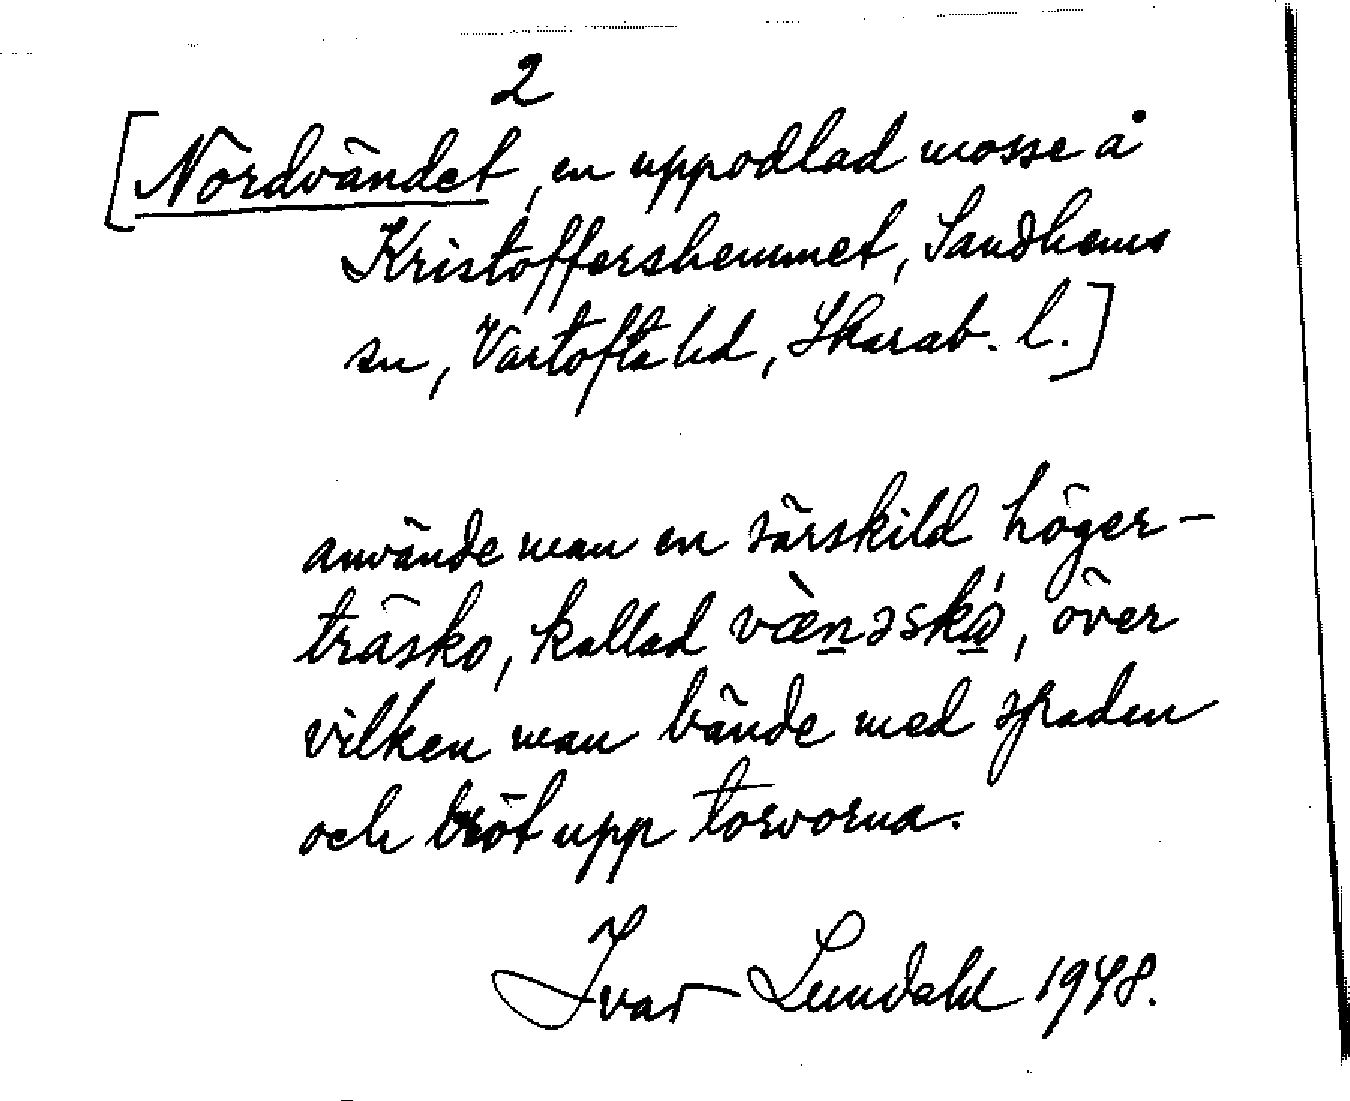 2
[Nordvändet, en uppodlad mosse å
Kristoffershemmet, Sandhems
sn, Vartofta hd, Skarab. l.]
använde man en särskild höger-
träsko, kallad
över
vilken man bände med spaden
och bröt upp torvorna.
Ivar Lundahl 1948.